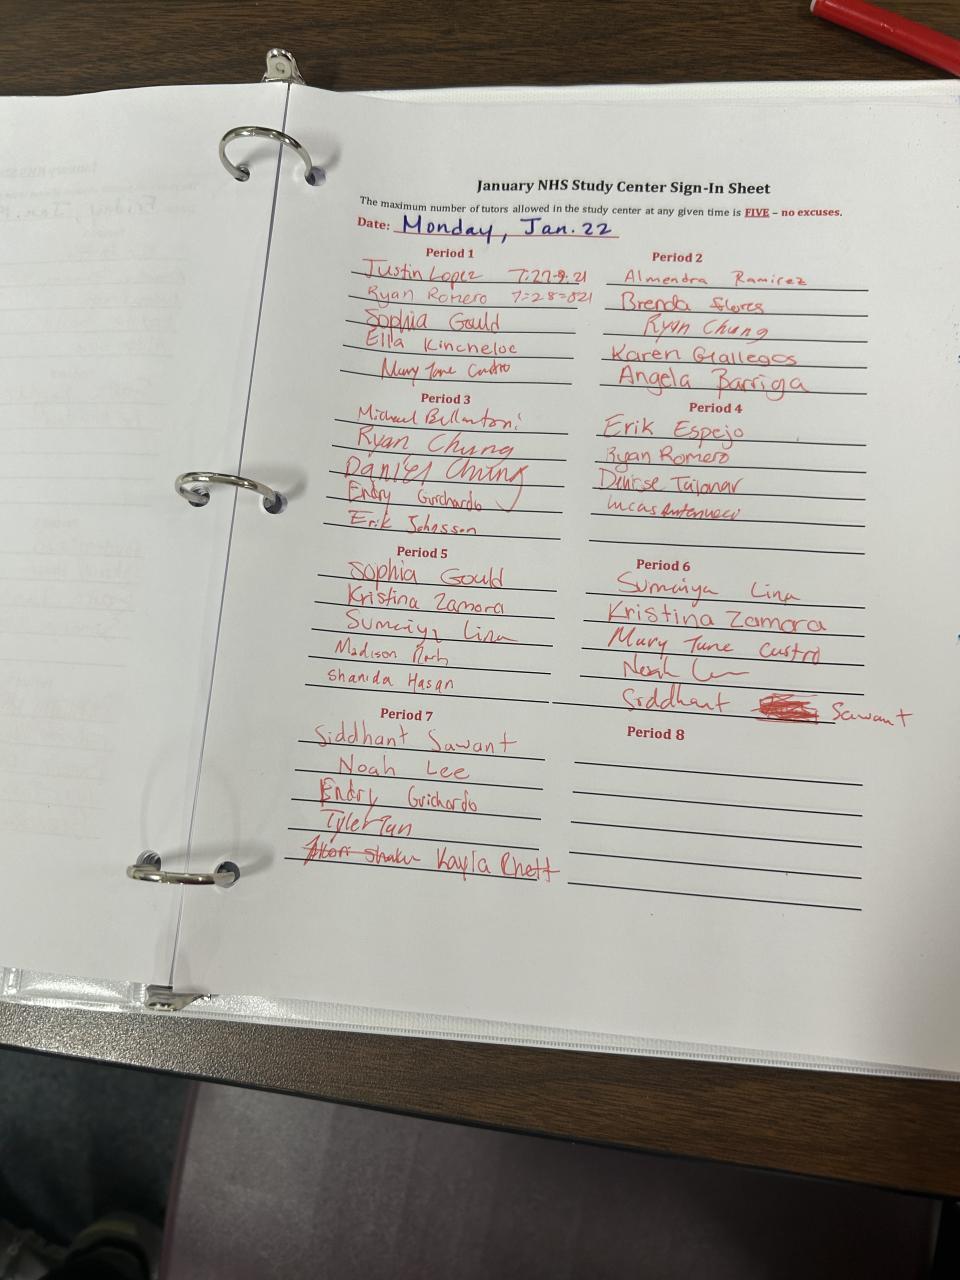 January NHS Study Center Sign-In Sheet
The maximum number of tutors allowed in the study center at any given time is FIVE – no excuses.
Date: Monday, Jan. 22
Period 1
Justin Lopez 7:27-8:21
Ryan Romero 7:28-821
Sophia Gould
Ella Kincheloe
Mary Jane Castro
Period 2
Almendra Ramirez
Brenda Flores
Ryan Chung
Karen Gallegos
Angela Barriga
Period 3
Michael Bellantoni
Ryan Chung
Daniel Chung
Endry Guichardo
Erik Johnsson
Period 4
Erik Espejo
Ryan Romero
Denisse
Lucas Antonucci
Period 5
Sophia Gould
Kristina Zamora
Sumaiya Lina
Madison
Shanida Hasan
Period 6
Sumaiya Lina
Kristina Zamora
Mary Jane Castro
Noah
Siddhant Sawant
Period 7
Siddhant Sawant
Noah Lee
Endry Guichardo
Tyler Tan
Kayla Rhett
Period 8